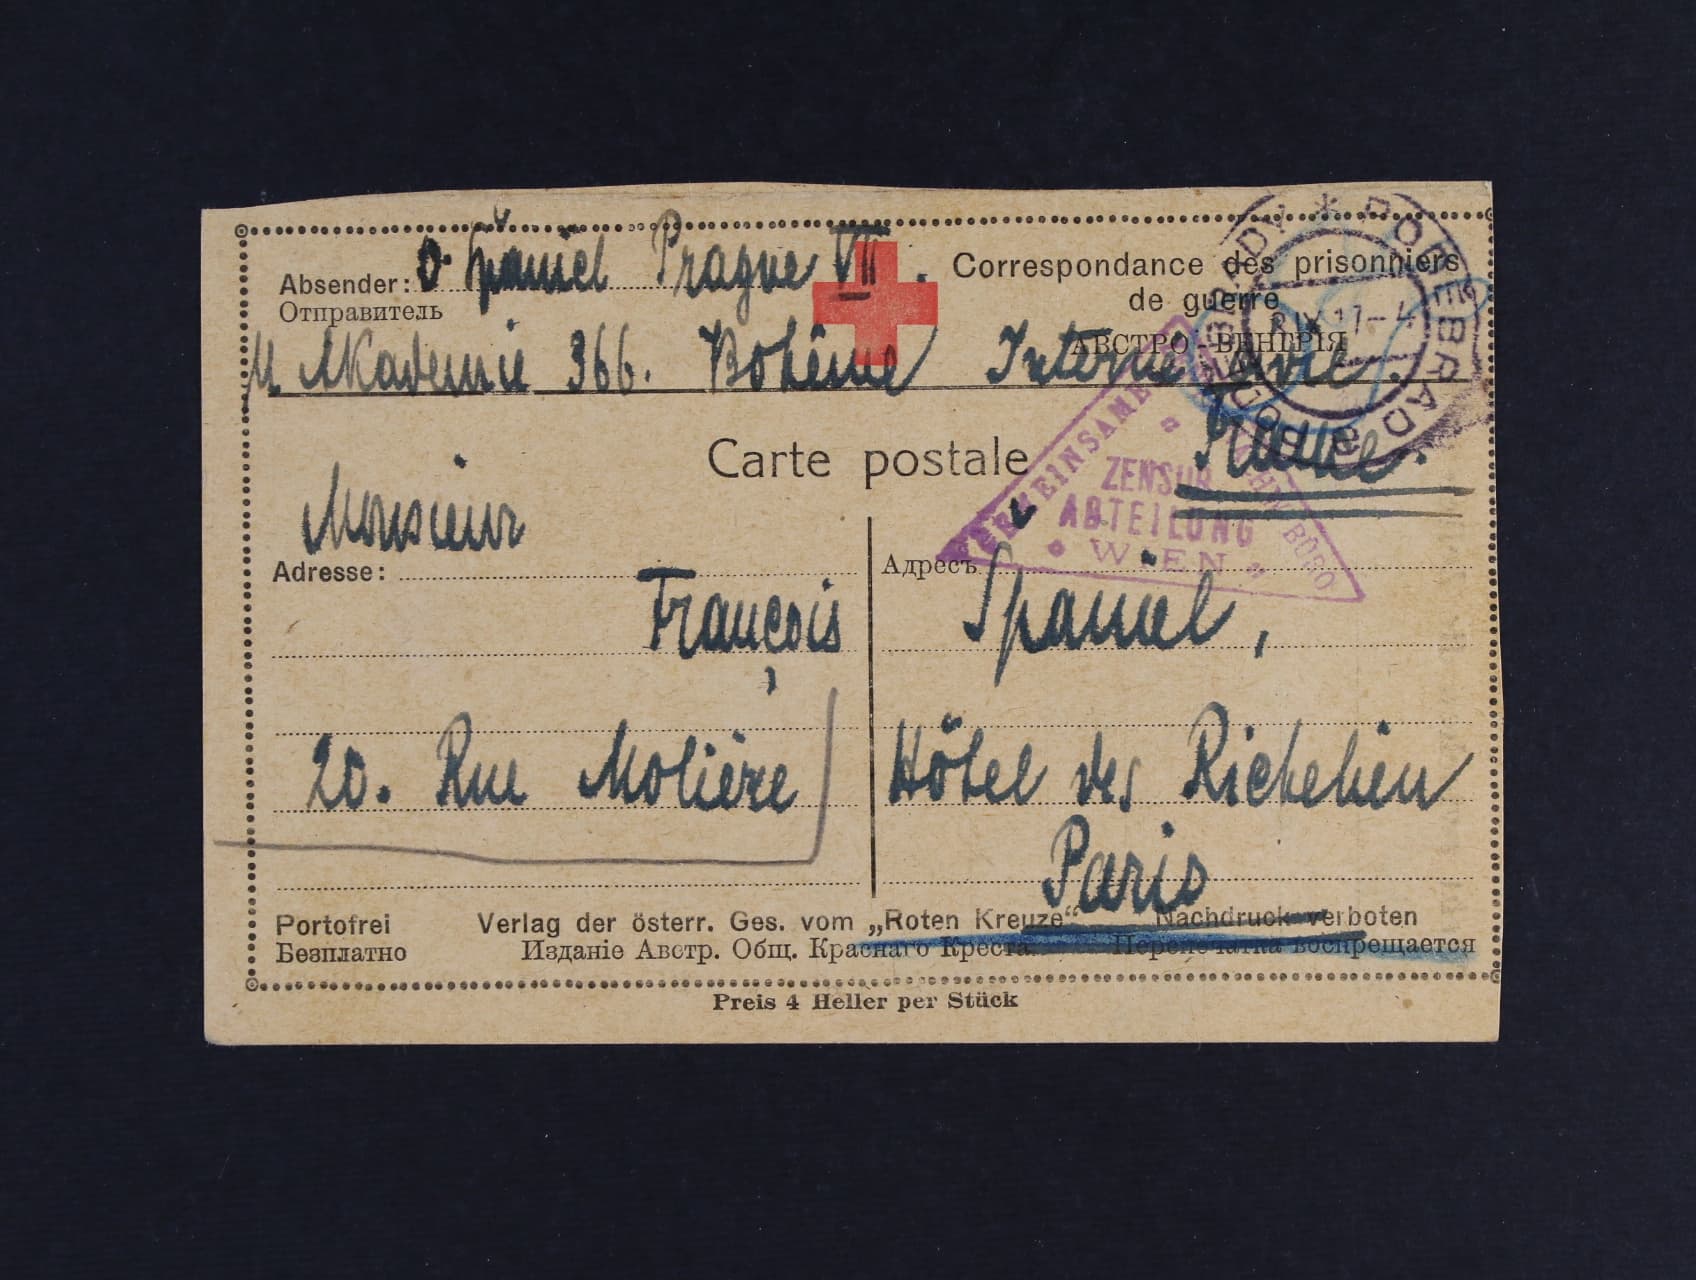 Absender: O. Španiel Prague VII.
Отправитель
Correspondance des prisonniers
de guerre
АВСТРО-ВЕНГРІЯ
U Akademie 366. Bohême Interné Civil.
France.
Carte postale
PODĚBRADY * PODĚBRAD
ZENSUR
ABTEILUNG
WIEN
Monsieur
Adresse:
Адресъ
François Španiel,
20. Rue Molière Hôtel des Richelieu
Paris
Portofrei Verlag der österr. Ges. vom „Roten Kreuze“ Nachdruck verboten
Безплатно Изданіе Австр. Общ. Краснаго Креста Перепечатка воспрещается
Preis 4 Heller per Stück